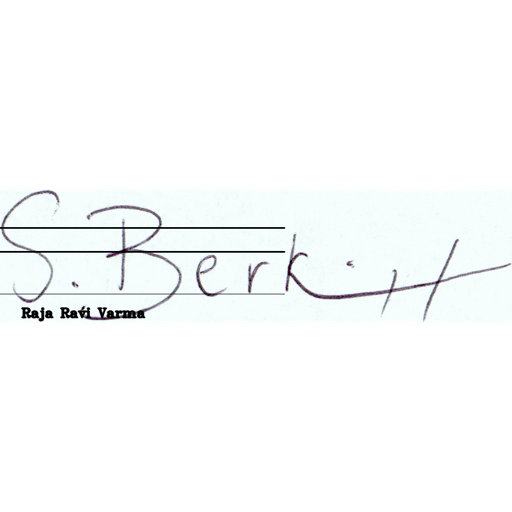 S. Berk
Raja Ravi Varma